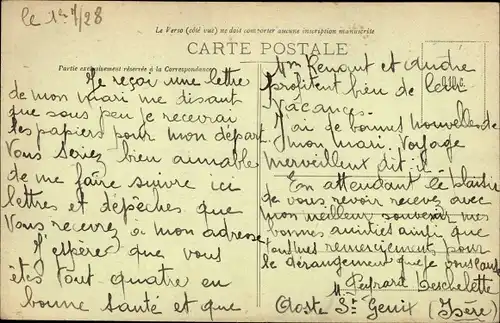 le 1er 7/28
Le Verso (côté vue) ne doit comporter aucune inscription manuscrite
CARTE POSTALE
Partie exclusivement réservée à la Correspondance
Je reçoi une lettre
de mon mari me disant
que sous peu je recevrai
les papiers pour mon départ
Vous seriez bien aimable
de me faire suivre ici
lettres et dépêches que
vous recevrez à mon adresse
J'espère que vous
êtes tout quatre en
bonne santé et que
Mme et André
profitent bien de
vacances.
J'ai de bonnes nouvelles de
mon mari. Voyage
merveilleux dit il.
En attendant le plaisir
de vous revoir recevez avec
mon meilleur souvenir mes
bonnes amitiés ainsi que
remerciement pour
le dérangement que je vous cause
Aoste St Genix (Isère)